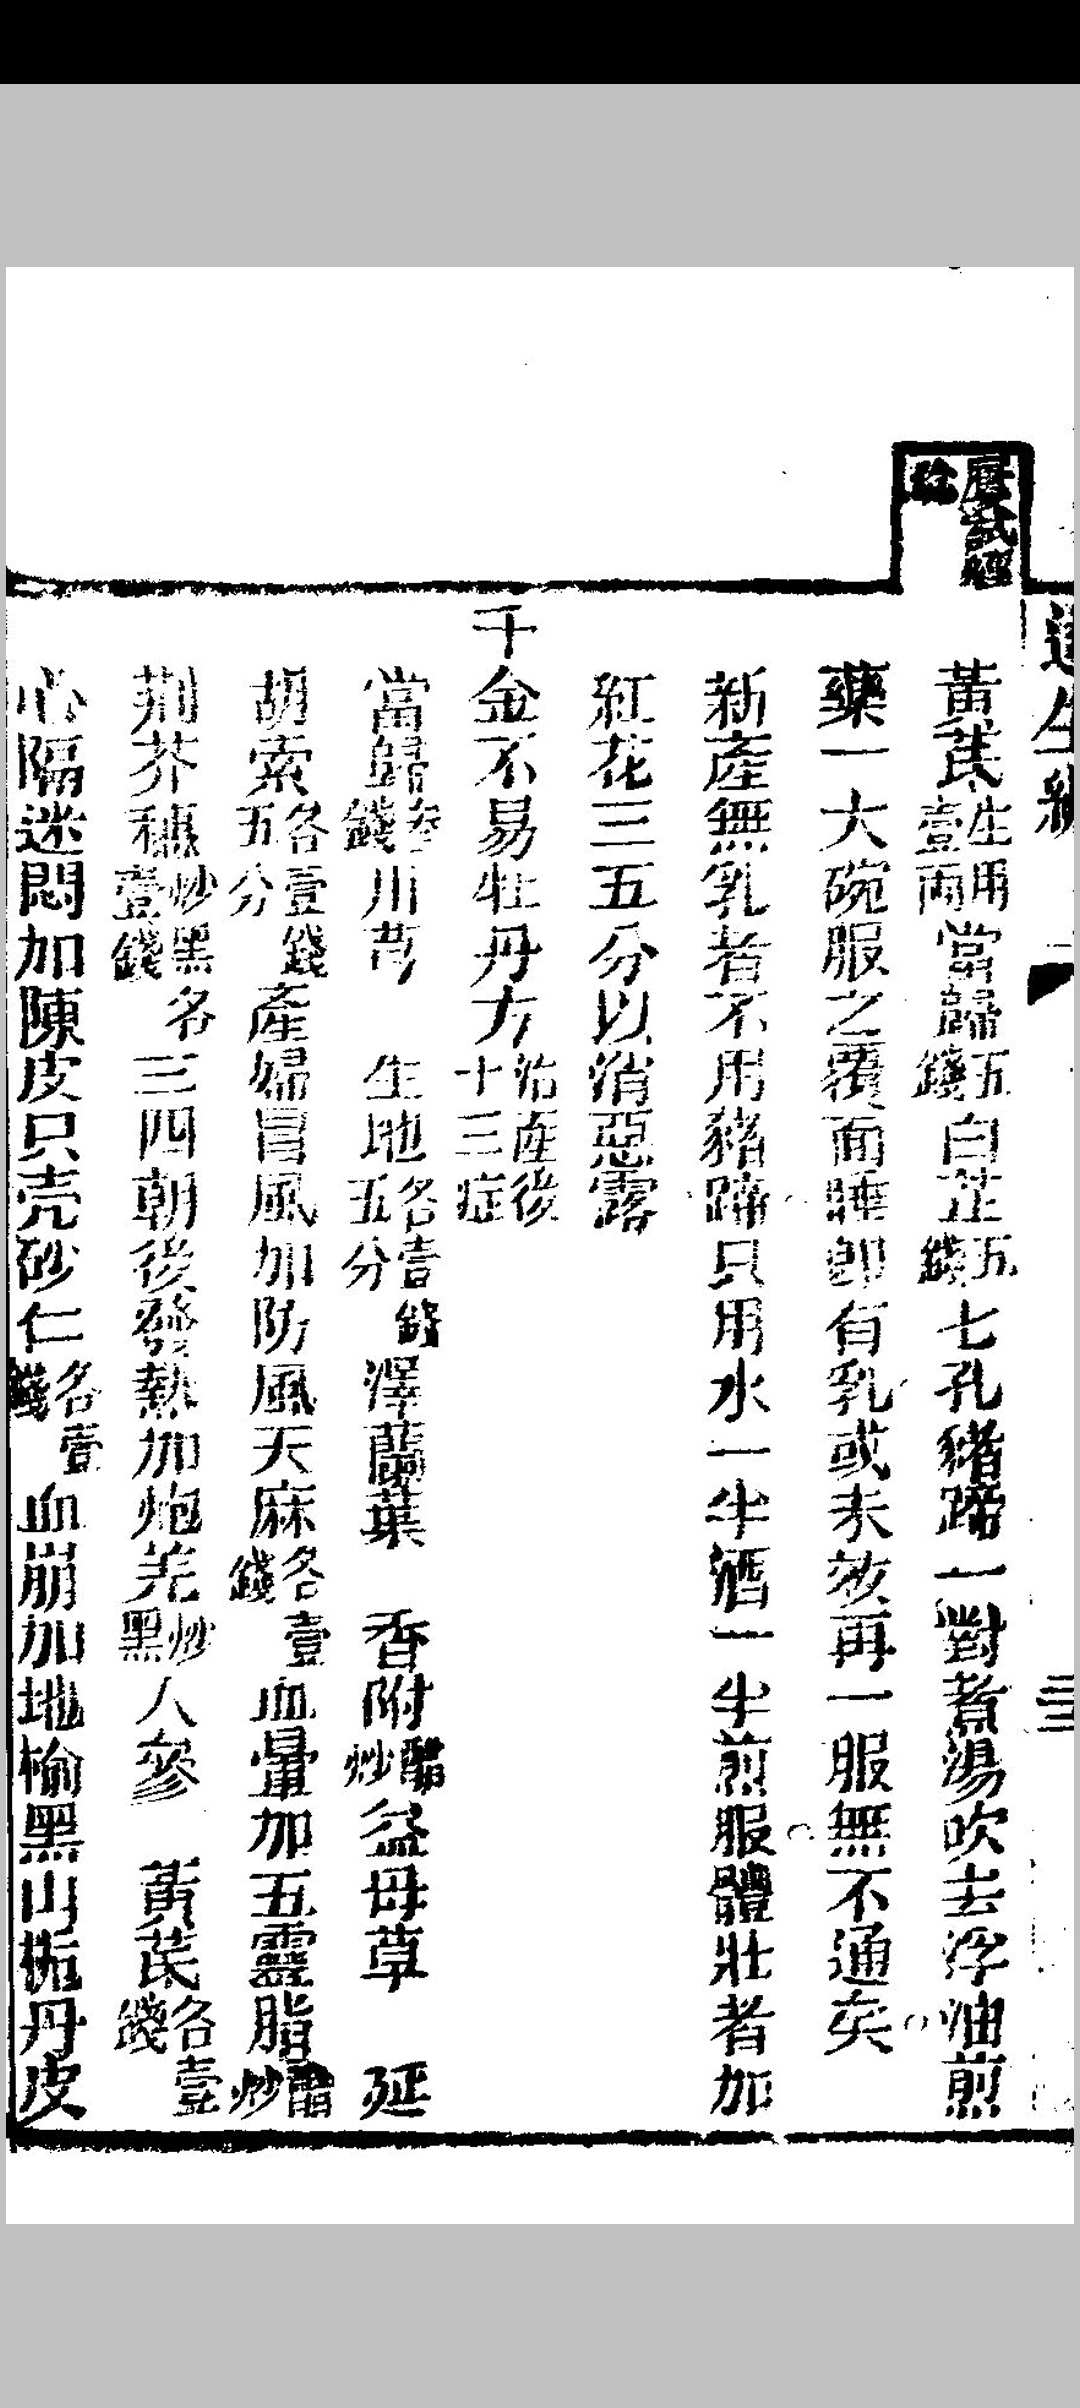 屢試經
驗
達生編
黃芪生用壹兩當歸五錢白芷五錢七孔豬蹄一對煮湯吹去浮油煎
藥一大碗服之覆面睡卽有乳或未效再一服無不通矣
新產無乳者不用豬蹄只用水一半酒一半煎服體壯者加
紅花三五分以消惡露
千金不易牡丹方治產後十三症
當歸叁錢川芎 生地各壹錢五分澤蘭葉 香附醋炒益母草 延
胡索各壹錢五分產婦冒風加防風天麻各壹錢血暈加五靈脂醋炒
荆芥穗炒黑各壹錢三四朝後發熱加炮羌炒黑人參 黃芪各壹錢
心隔迷悶加陳皮只壳砂仁各壹錢血崩加地榆黑山梔丹皮